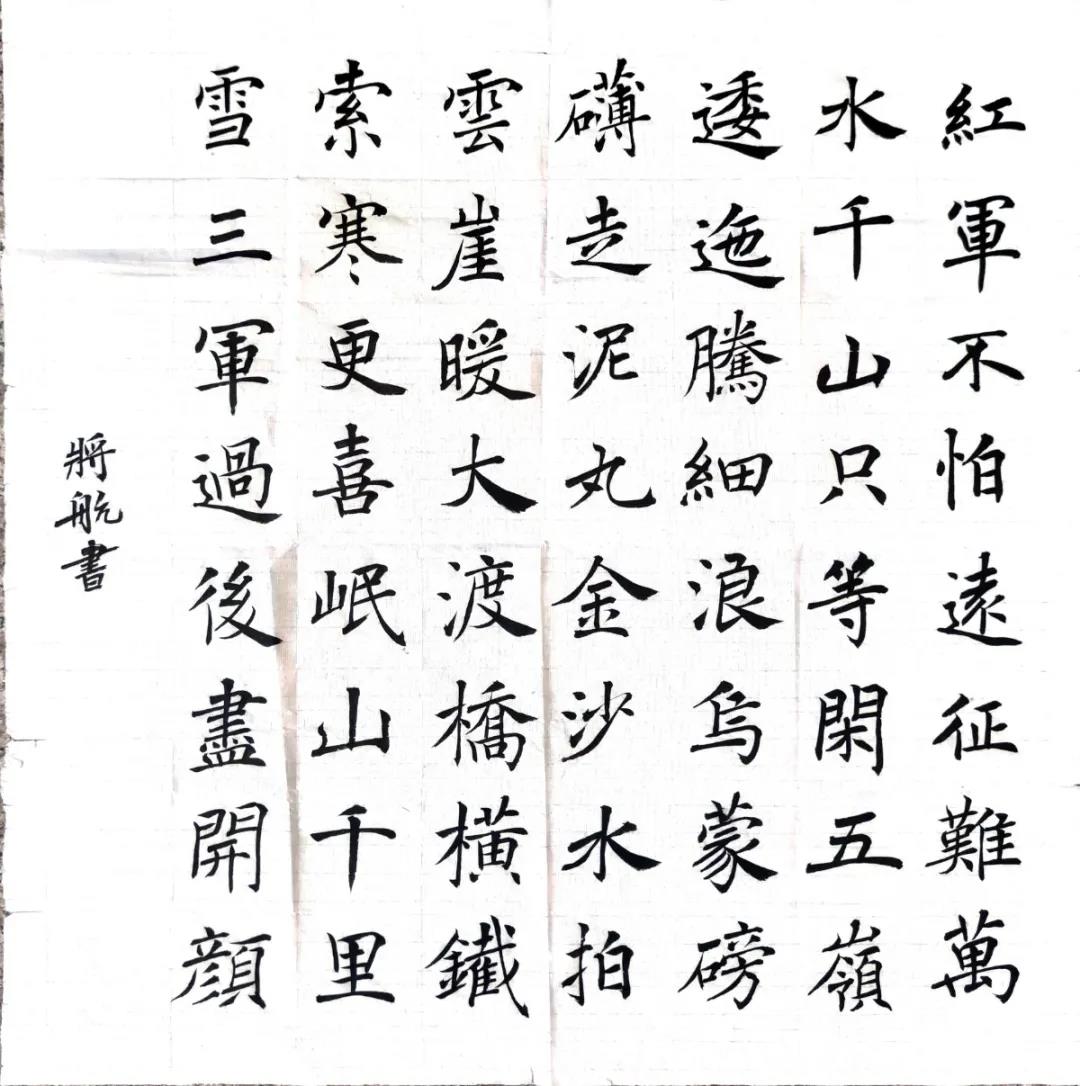 紅軍不怕遠征難萬
水千山只等閑五嶺
逶迤騰細浪烏蒙磅
礴走泥丸金沙水拍
雲崖暖大渡橋橫鐵
索寒更喜岷山千里
雪三軍過後盡開顏
將航書